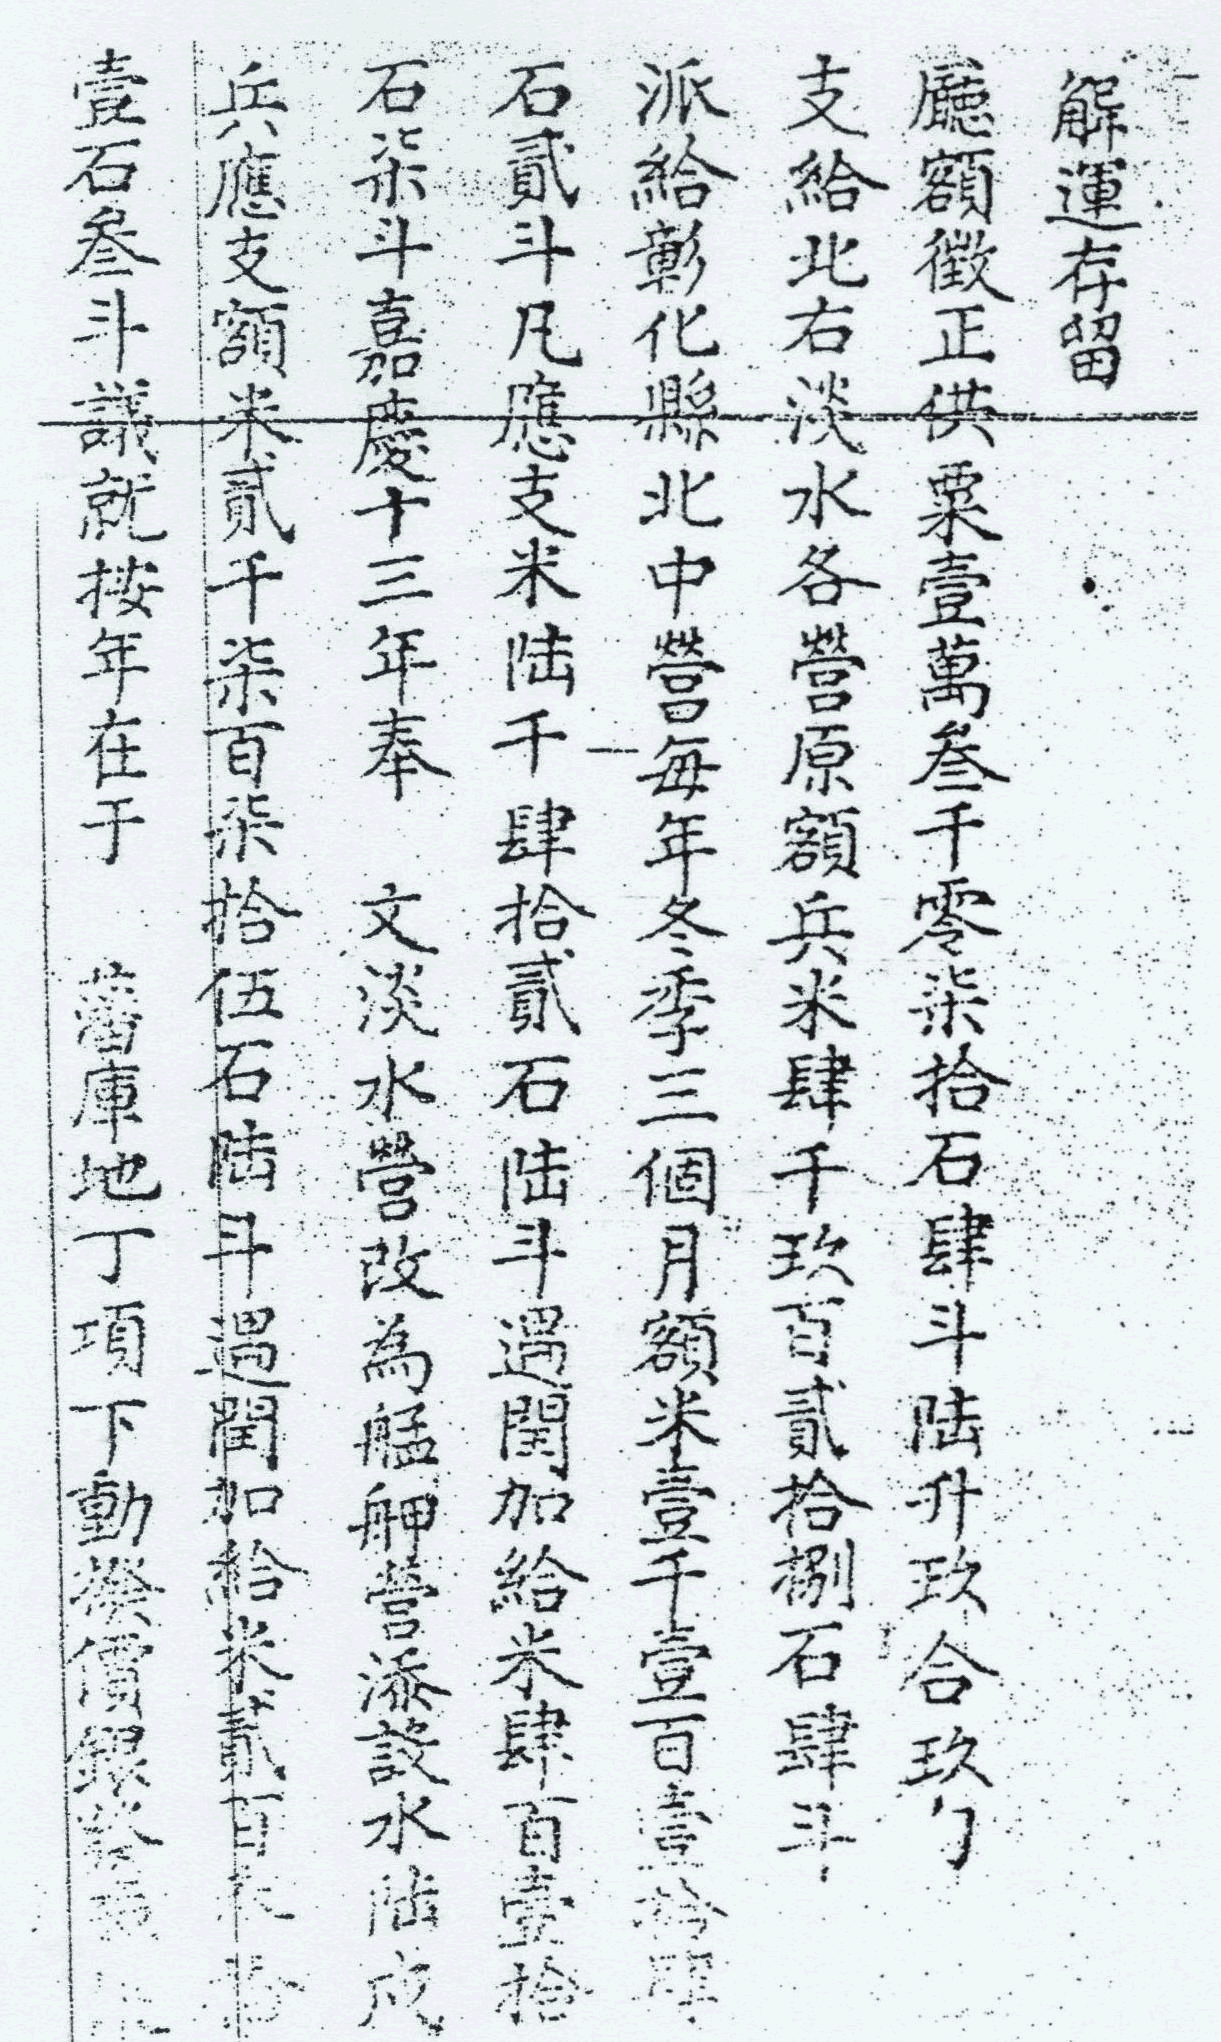 解運存留
廳額徵正供粟壹萬叁千零柒拾石肆斗陸升玖合玖勺
支給北右淡水各營原額兵米肆千玖百貳拾捌石肆斗
派給彰化縣北中營每年冬季三個月額米壹千壹百壹拾肆
石貳斗凡應支米陸千肆拾貳石陸斗遇閏加給米肆百壹拾
石柒斗嘉慶十三年奉　文淡水營改為艋舺營添設水陸戍
兵應支額米貳千柒百柒拾伍石陸斗遇閏加給米貳百叁拾
壹石叁斗議就按年在于　藩庫地丁項下動撥價銀